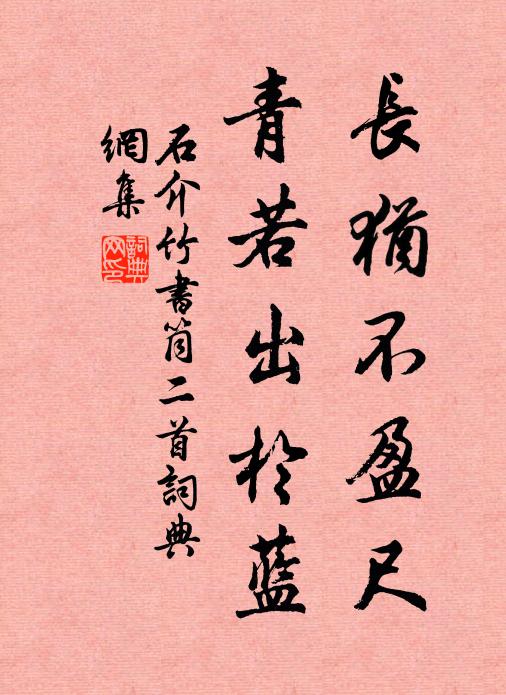 長猶不盈尺
青若出於藍
石介竹書筒二首詞典
網集
詞典
网印